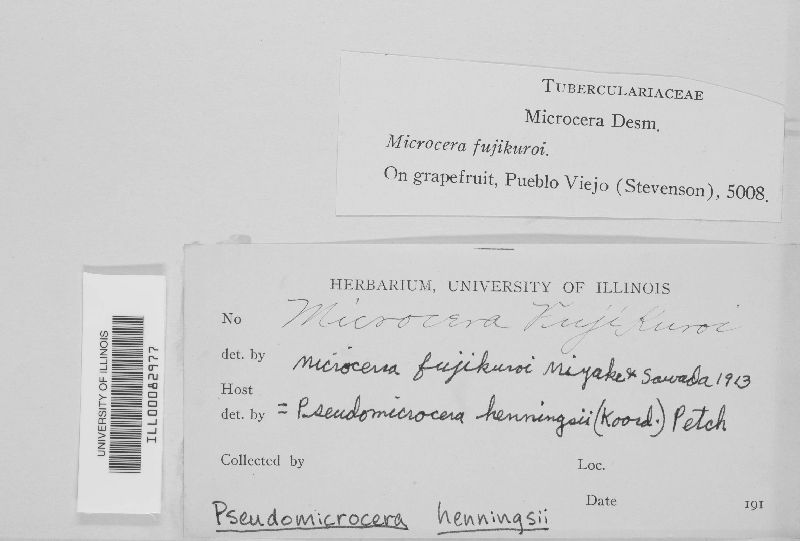 TUBERCULARIACEAE
Microcera Desm.
Microcera fujikuroi.
On grapefruit, Pueblo Viejo (Stevenson), 5008.
HERBARIUM, UNIVERSITY OF ILLINOIS
No Microcera Fujikuroi
det. by Microcera fujikuroi Miyake & Sawada 1913
Host
det. by = Pseudomicrocera henningsii (Koord.) Petch
Collected by Loc.
Date 191
Pseudomicrocera henningsii
UNIVERSITY OF ILLINOIS
ILL00082977